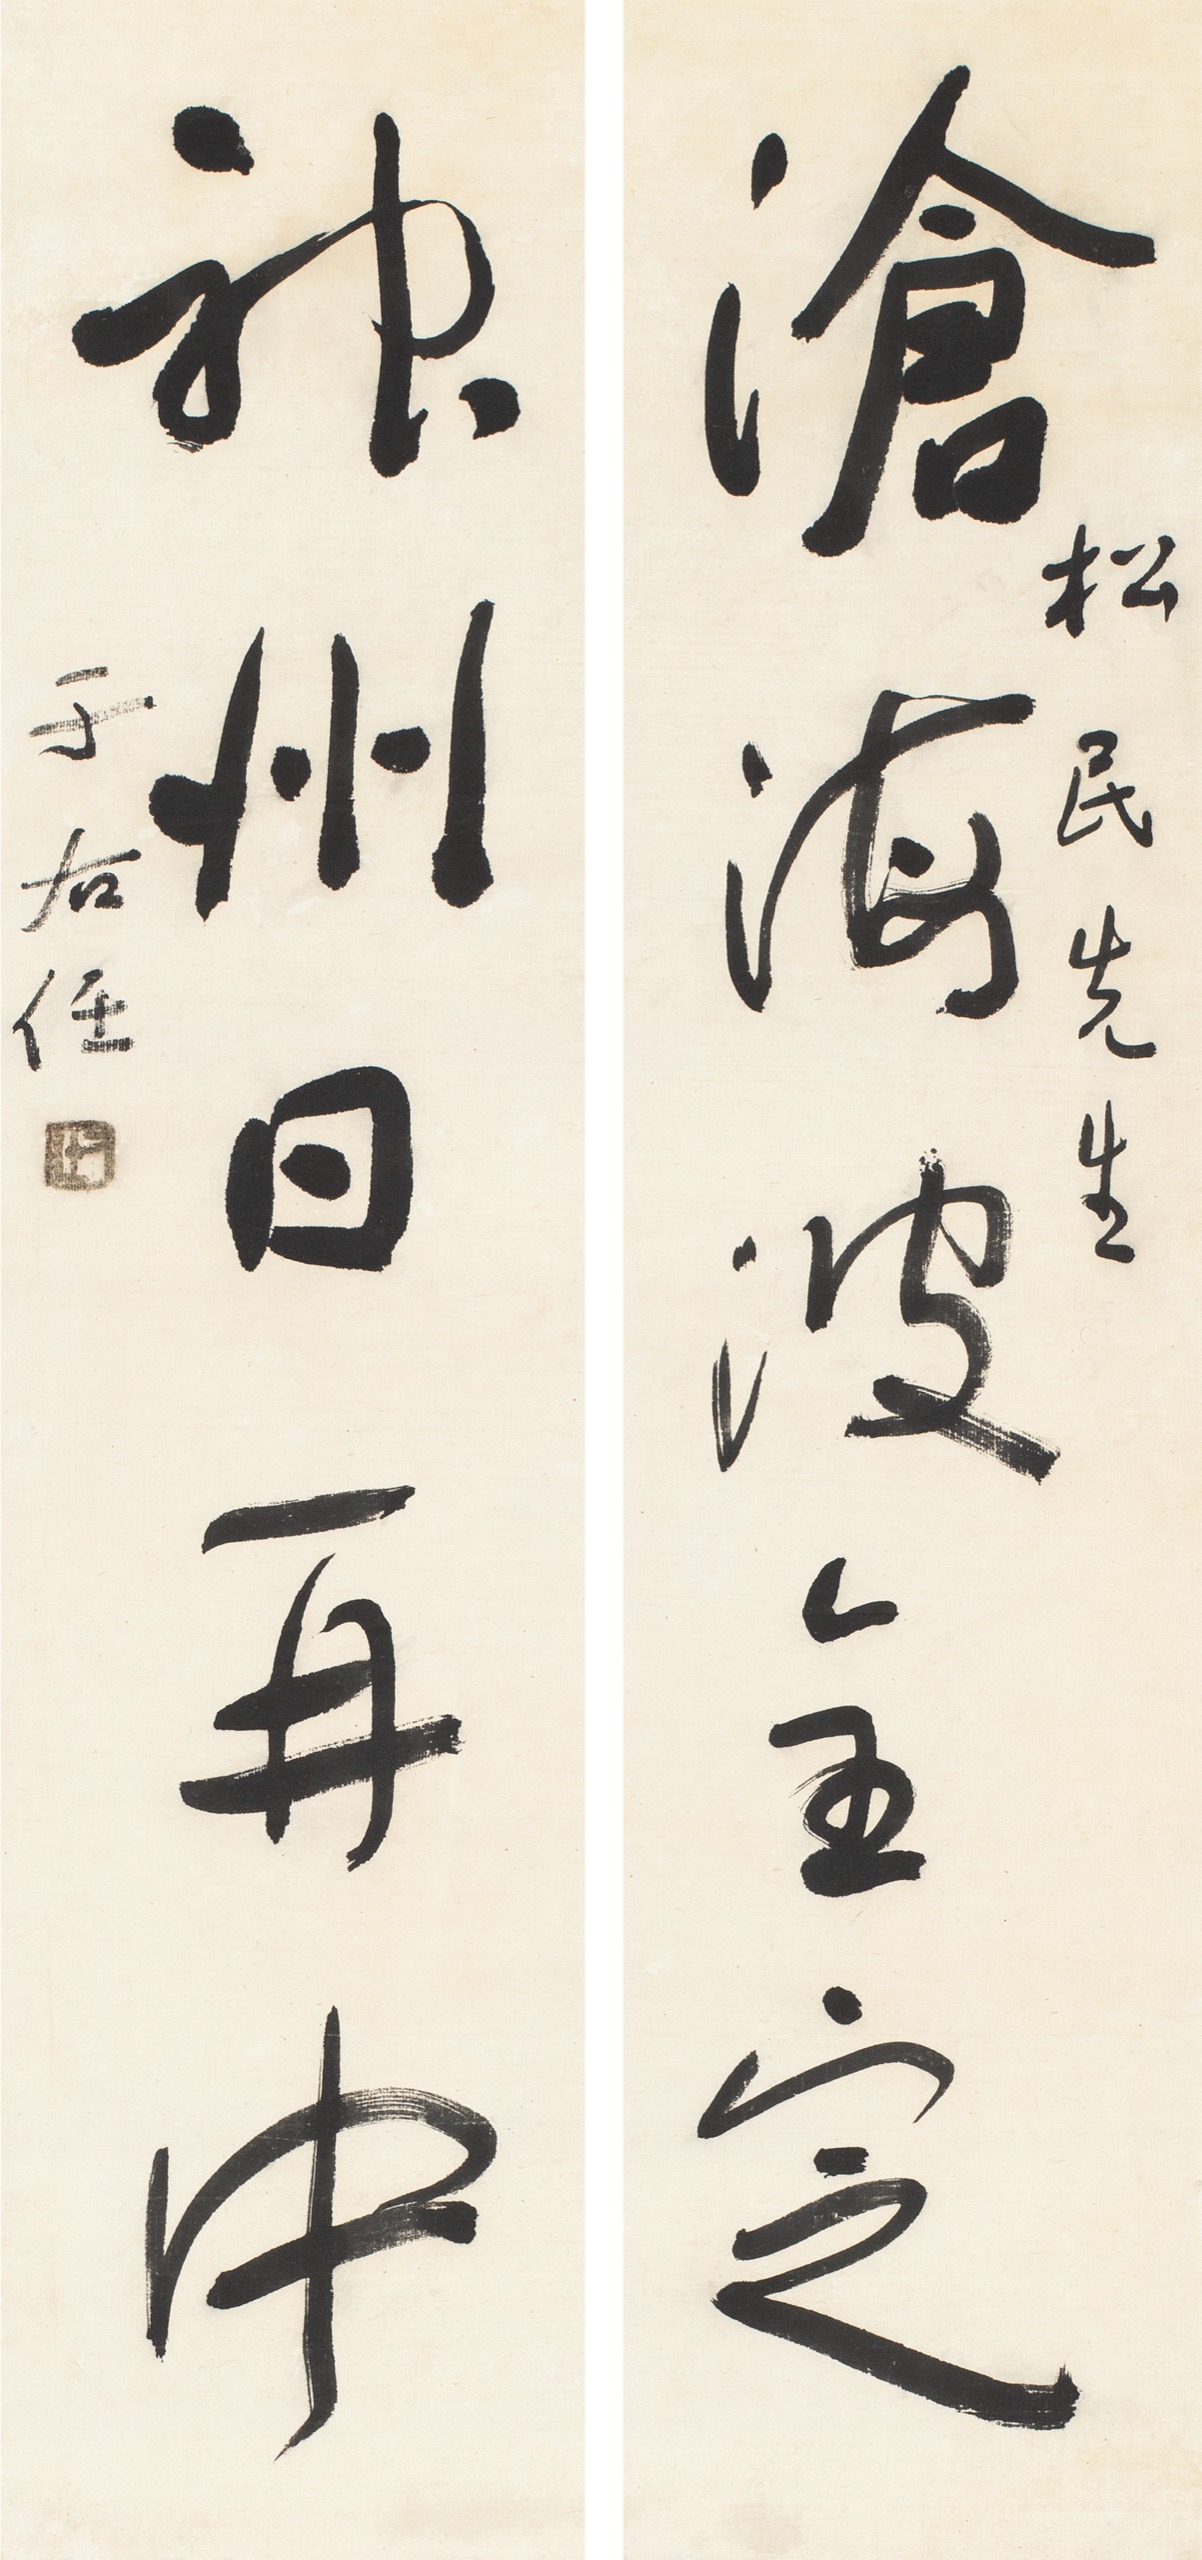 滄海波全定
松民先生
神州日再中
于右任